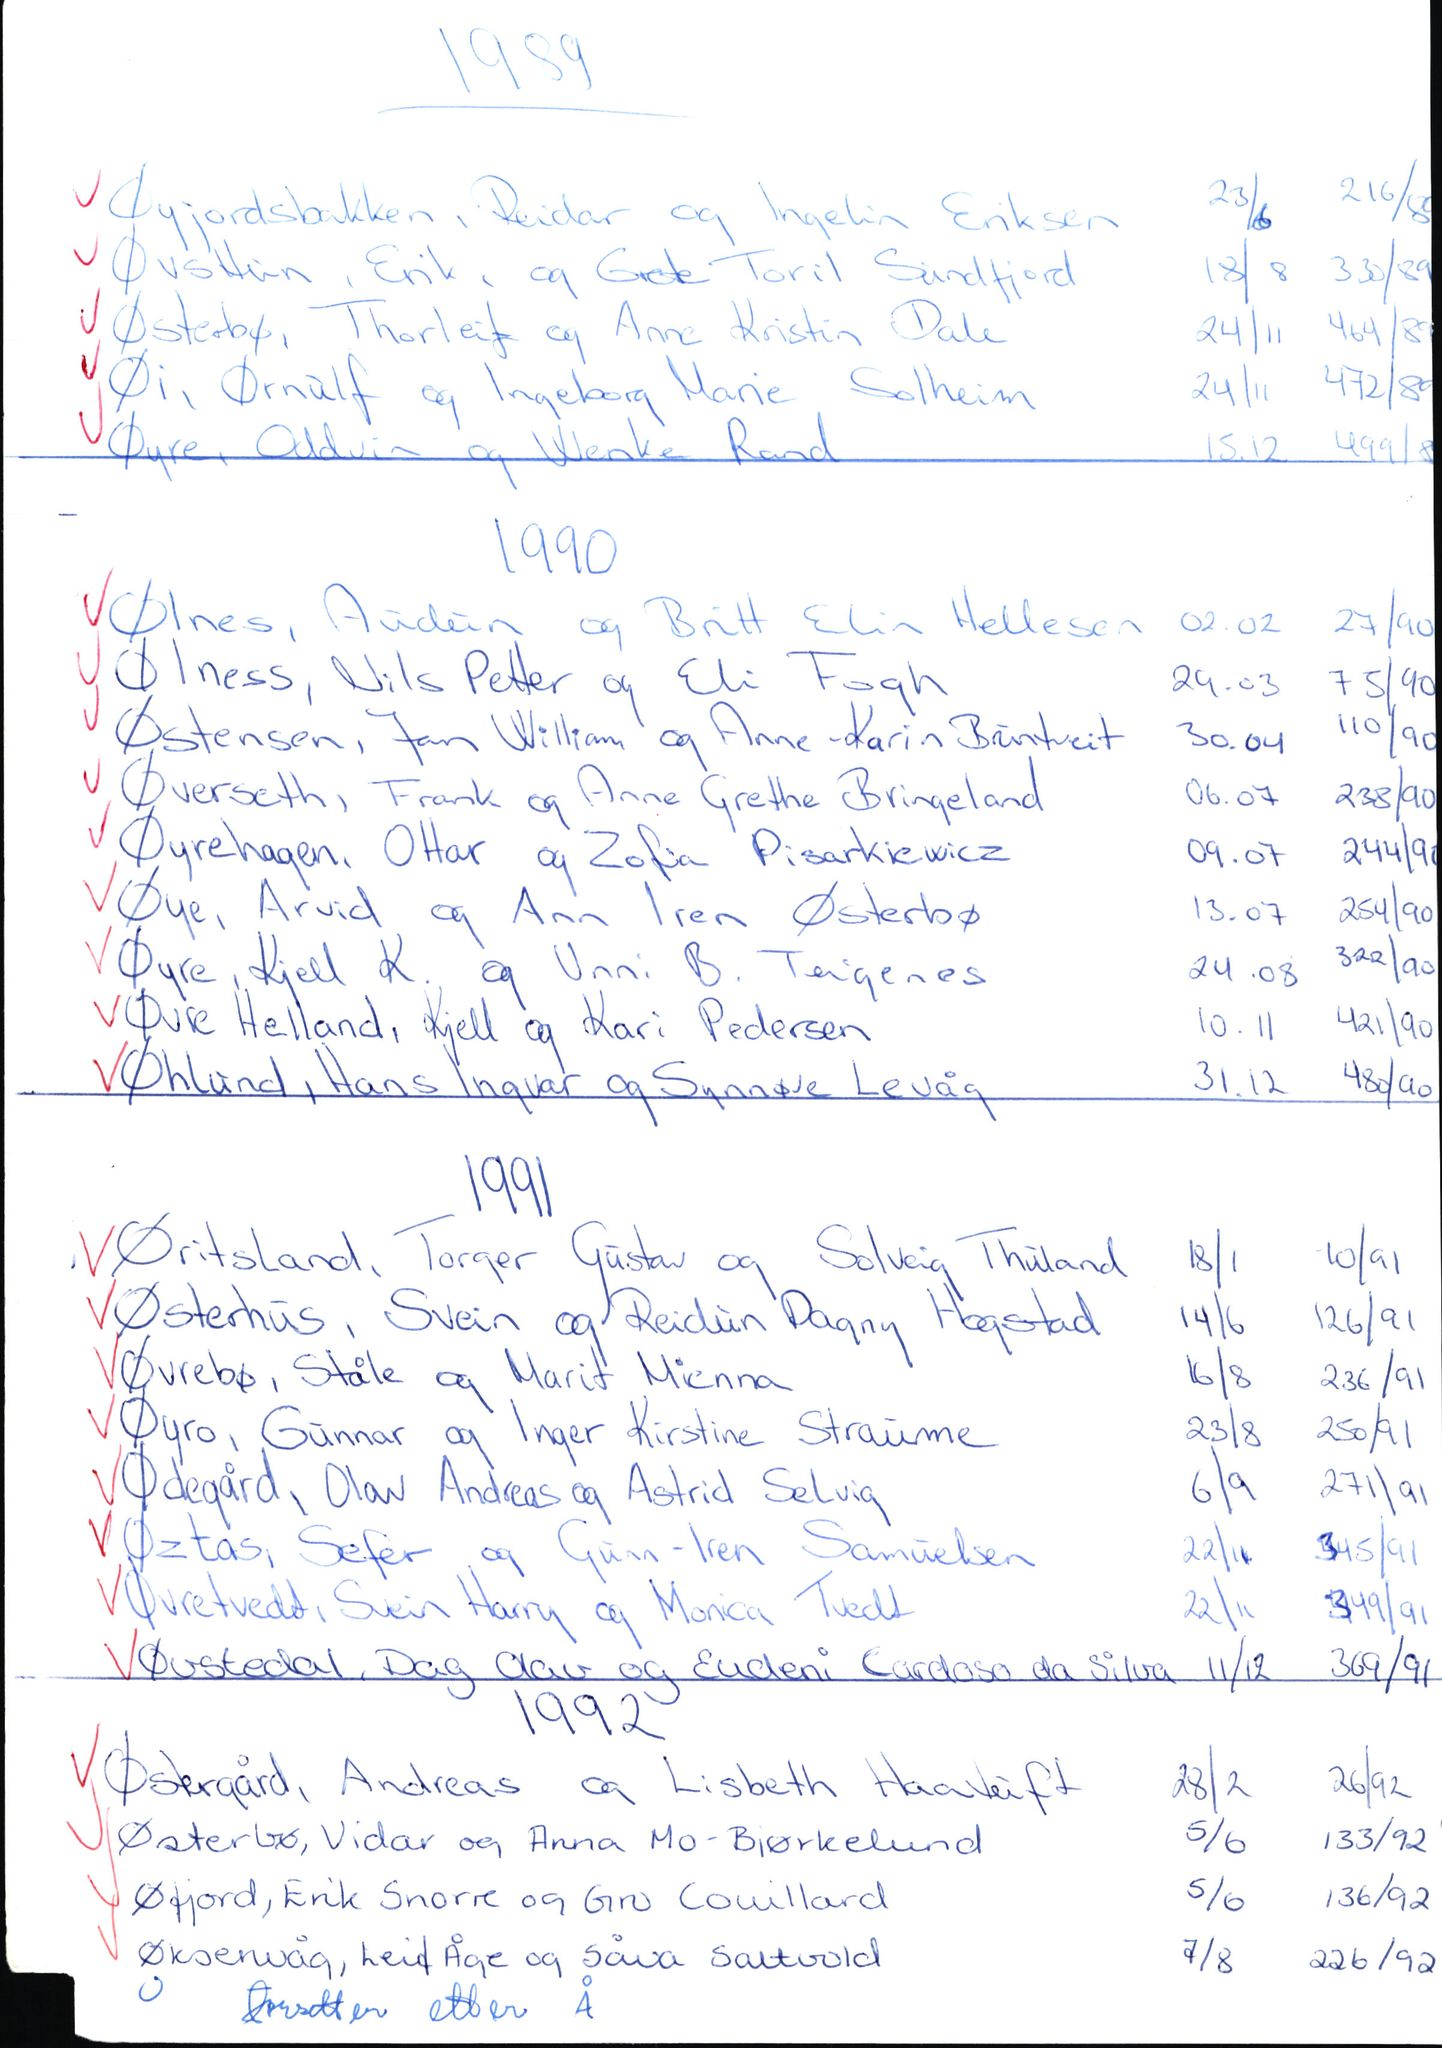 1989
Øyjordsbakken, Reidar og Ingelin Eriksen 23/6 216/89
Øvsttun, Erik, og Grete Toril Sundfjord 18/8 330/89
Østerbø, Thorleif og Anne Kristin Dale 24/11 464/89
Øi, Ørnulf og Ingeborg Marie Solheim 24/11 472/89
Øyre, Oddvin og Wenke Rand 15.12 499/8
1990
Ølnes, Audun og Britt Elin Hellesen 02.02 27/90
Ølness, Nils Petter og Eli Fogh 29.03 75/90
Østensen, Jan William og Anne-Karin Buntveit 30.04 110/90
Øverseth, Frank og Anne Grethe Bringeland 06.07 238/90
Øyrehagen, Ottar og Zofia Pisarkiewicz 09.07 244/90
Øye, Arvid og Ann Iren Østerbø 13.07 254/90
Øyre, Kjell K. og Unni B. Teigenes 24.08 322/90
Øvre Helland, Kjell og Kari Pedersen 10.11 421/90
Øhlund, Hans Ingvar og Synnøve Levåg 31.12 480/90
1991
Øritsland, Torger Gustav og Solveig Thuland 18/1 10/91
Østerhus, Svein og Reidun Dagny Hogstad 14/6 126/91
Øvrebø, Ståle og Marit Mienna 16/8 236/91
Øyro, Gunnar og Inger Kirstine Straume 23/8 250/91
Ødegård, Olav Andreas og Astrid Selvig 6/9 271/91
Øztas, Sefer og Gunn-Iren Samuelsen 22/11 345/91
Øvretvedt, Svein Harry og Monica Tvedt 22/11 349/91
Øvstedal, Dag Olav og Eudeni Cardoso da Silva 11/12 369/91
1992
Østergård, Andreas og Lisbeth 28/2 26/92
Østerbø, Vidar og Anna Mo-Bjørkelund 5/6 133/92
Øfjord, Erik Snorre og Gro Couillard 5/6 136/92
Øksenvåg, Leif Åge og Såva Saltvold 7/8 226/92
Ø Fortsetter etter Å